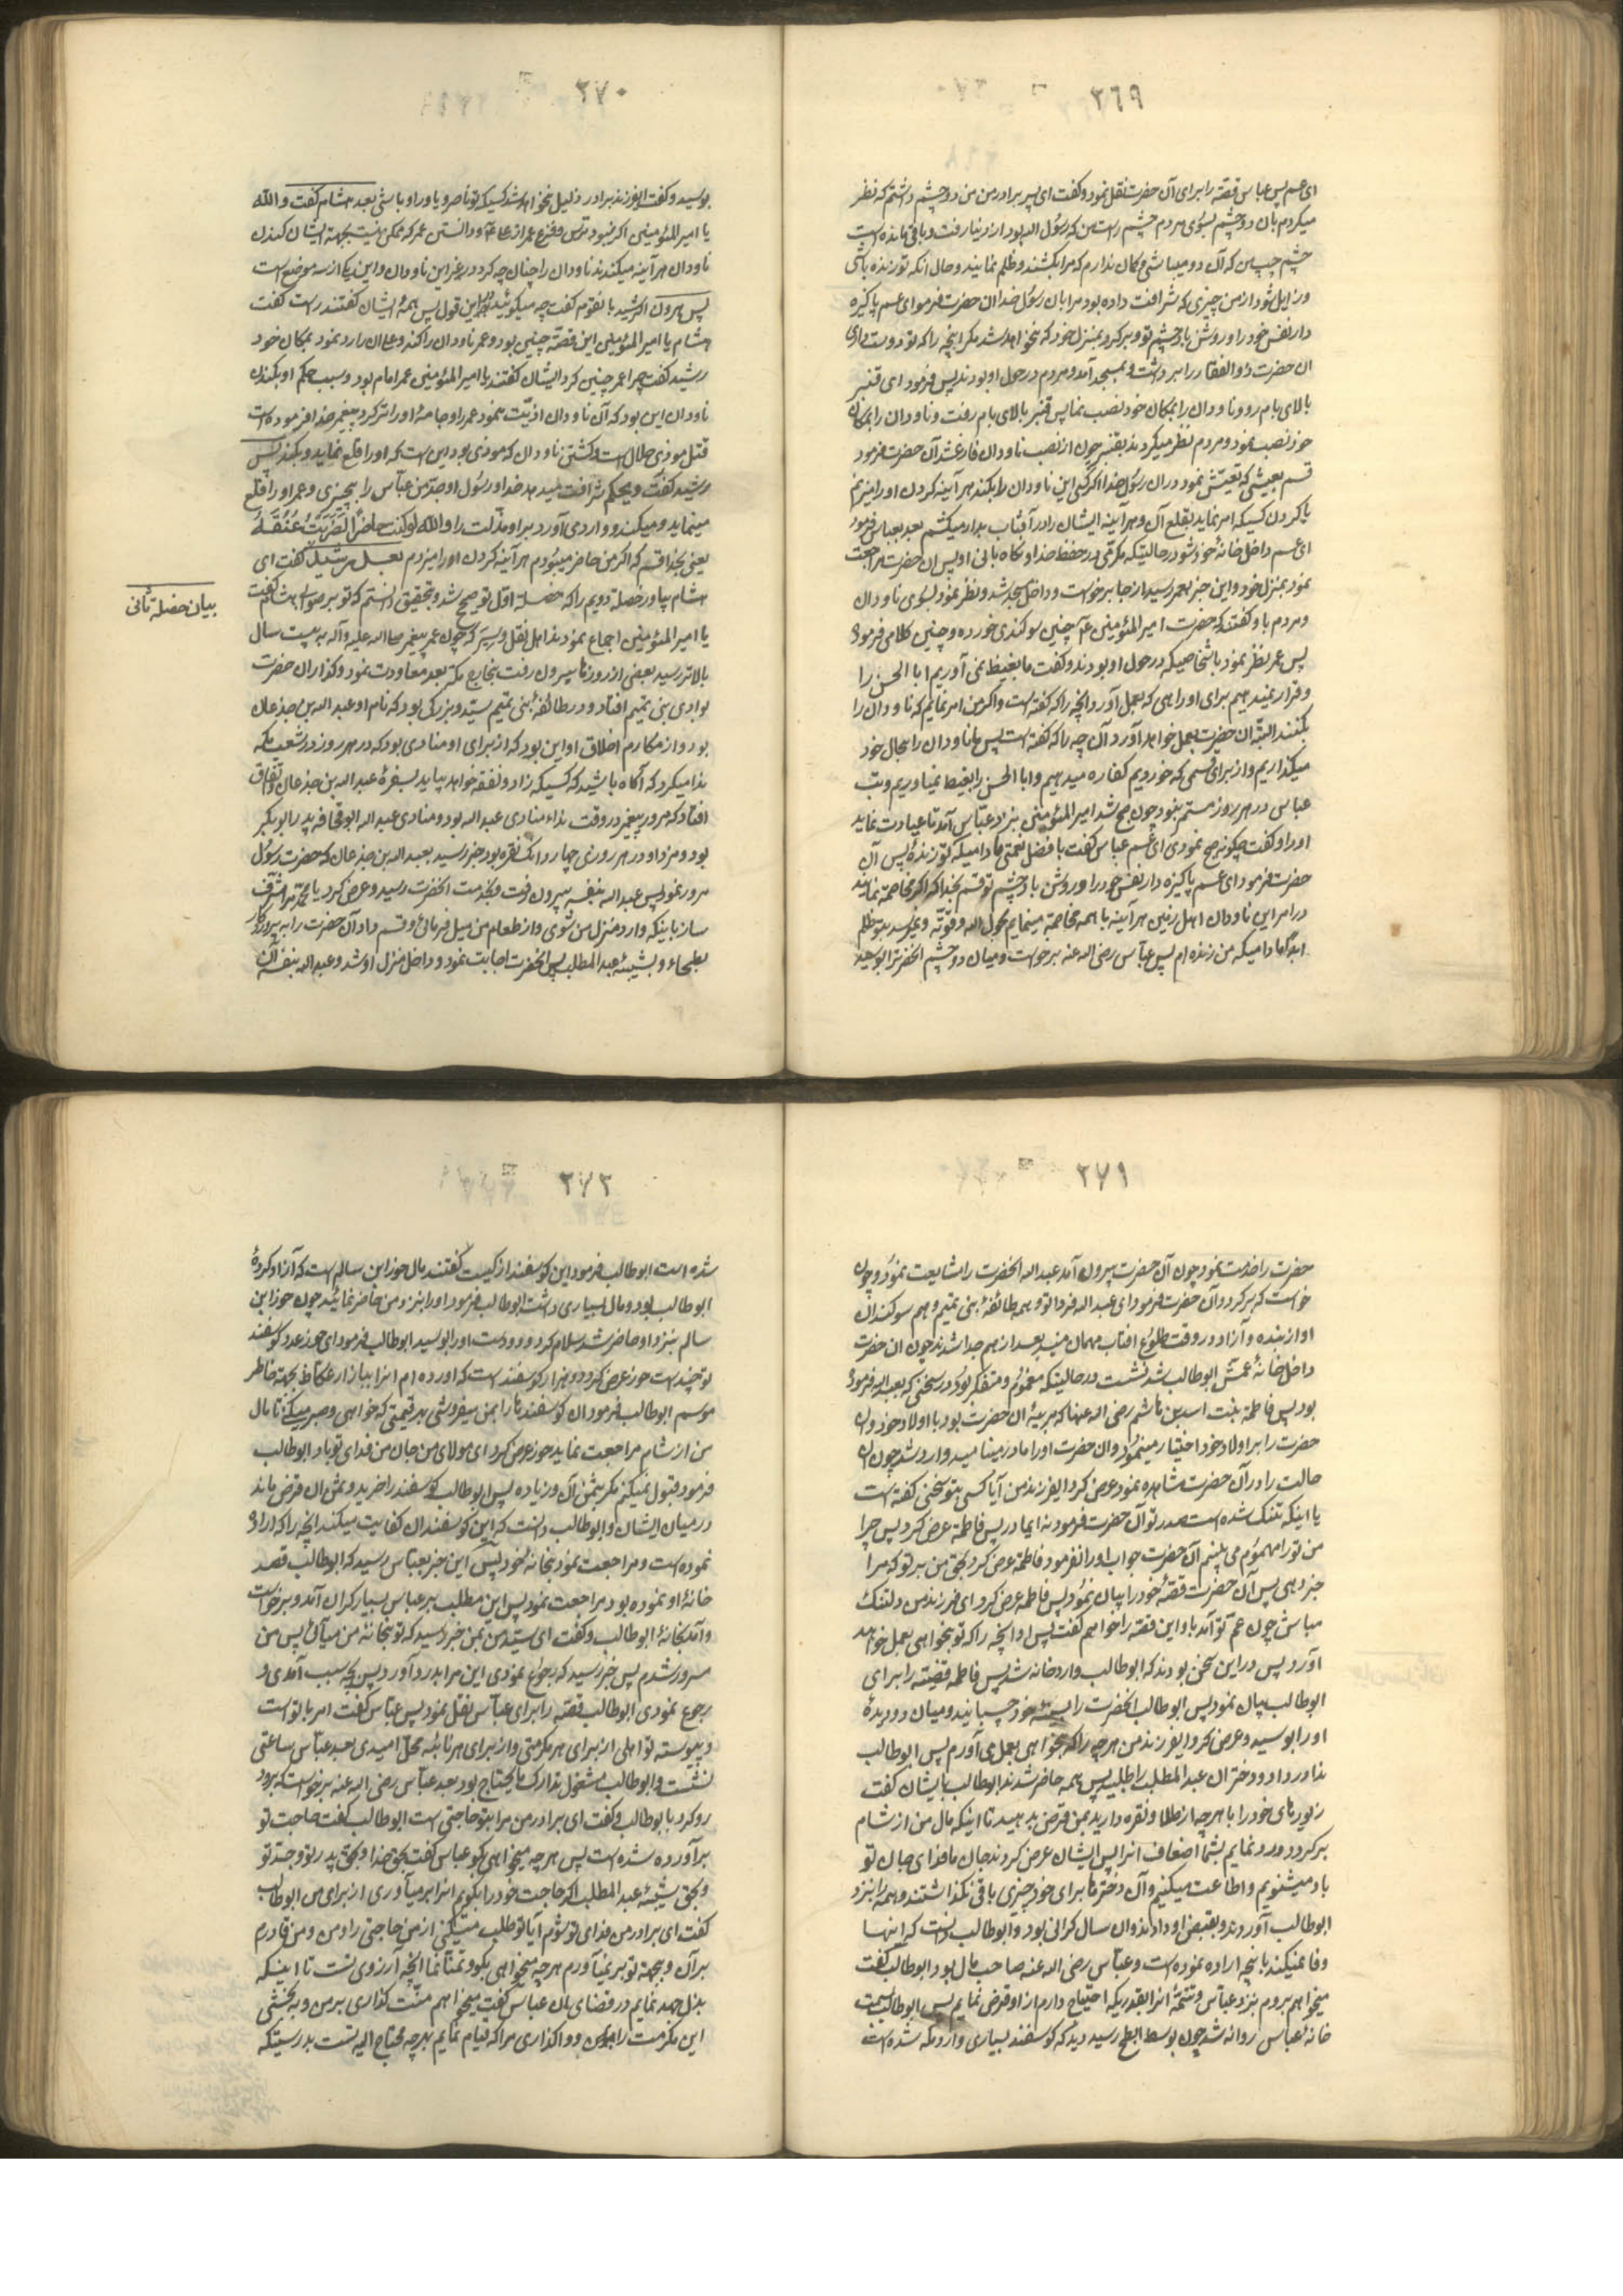 ۳۶۹
ای عم پس عباس قصّه را برای آن حضرت نقل نمود و گفت ای پسر برادر من من دو چشم داشتم که نظر
میکردم بان دو چشم بسوی مردم چشم راست من که رسول اله بود از دنیا رفت و باقی مانده است
چشم چپ من که آن دو میباشی و گمان ندارم که مرا بکشند و ظلم نمایند و حال انکه تو زنده باشی
و زایل شود از من چیزی که شرافت داده بود مرا بان رسول خدا ان حضرت فرمود ای عم پاکیزه
دار نفس خود را و روشن باد چشم تو و برگرد بمنزل خود که نخواهد شد مگر انچه را که تو دوست داری
ان حضرت ذو الفقار را برداشت و بمسجد آمد و مردم در حول او بودند پس فرمود ای قنبر
بالای بام رو و ناودان را بمکان خود نصب نما پس قنبر بالای بام رفت و ناودان را بمکان
خود نصب نمود و مردم نظر میکردند بقنبر چون از نصب ناودان فارغ شد آن حضرت فرمود
قسم بعیشی که تعیّش نمود در ان رسول خدا اگر کسی این ناودان را بکند هر آینه گردن او را میزنم
یا گردن کسیکه امر نماید بقلع آن و هر آینه ایشان را در آفتاب بدار میکشم بعد بعباس فرمود
ای عم داخل خانهٔ خود شو در حالتیکه مکرّمی در حفظ خدا و نگاه بانی او پس ان حضرت مراجعت
نمود بمنزل خود و این خبر بعمر رسید از جا برخواست و داخل مسجد شد و نظر نمود بسوی ناودان
و مردم باو گفتند که حضرت امیر المؤمنین ع چنین سوگندی خورده و چنین کلامی فرمود
پس عمر نظر نمود باشخاصیکه در حول او بودند و گفت ما بغیظ نمی آوریم ابا الحسن را
و قرار نمیدهیم برای او راهی که بعمل آورد انچه را که گفته است و اگر من امر نمایم که ناودان را
بکنند البتّه ان حضرت بعمل خواهد آورد آن چه را که گفته است پس ما ناودان را بحال خود
میگذاریم و از برای قسمی که خوردیم کفاره میدهیم و ابا الحسن را بغیظ نمیاوریم و تب
عباس در هر روز مستمر بود چون صبح شد امیر المؤمنین بنزد عباس آمد تا عیادت نماید
او را و گفت چگونه صبح نمودی ای عم عباس گفت با فضل نعمتی ما دامیکه تو زندهٔ پس آن
حضرت فرمود ای عم پاکیزه دار نفس خود را و روشن باد چشم تو قسم بخدا که اگر مخاصمه نمایند
در امر این ناودان اهل زمین هر آینه با همه مخاصمه مینمایم بحول اله و قوّته و نمیرسد بتو ظلم
ابدا ما دامیکه من زنده ام پس عباس رضی اله عنه برخواست و میان دو چشم انحضرت را بوسید
۳۷۰
بوسید و گفت ایفرزند برادر ذلیل نخواهد شد کسیکه تو ناصر و یاور او باشی بعد هشام گفت و اللّه
یا امیر المؤمنین اگر نبود ترس و فزع عمر از علی ع و دانستن عمر که ممکن نیست بجهة ایشان کندن
ناودان هر آینه میکندند ناودان را چنان چه کرد در غیر این ناودان و این یکی از سه موضع است
پس هرون الرشید بانقوم گفت چه میگوئید در این قول پس همهٔ ایشان گفتند راست گفت
هشام یا امیر المؤمنین این قصّه چنین بود و عمر ناودان را کند و علی ان را رد نمود بمکان خود
رشید گفت چرا عمر چنین کرد ایشان گفتند یا امیر المؤمنین عمر امام بود و سبب حکم او بکندن
ناودان این بود که آن ناودان اذیّت نمود عمر را و جامهٔ او را تر کرد پیغمبر خدا فرموده است
قتل موذی حلال است و کشتن ناودان که موذی بود این است که او را قلع نماید و بکند پس
رشید گفت ویحکم شرافت میدهد خدا و رسول او جدّ من عبّاس را بچیزی و عمر او را قلع
مینماید و میکند و وارد می آورد بر او مذلّت را و اللّه لو کنت حاضرًا لَضَرَبتُ عُنُقَهُ
یعنی بخدا قسم که اگر من حاضر میبودم هر آینه گردن او را میزدم بعد رشید گفت ای
هشام بیاور خصلة دویم را که خصلة اوّل توضیح شد و بتحقیق دانستم که تو بر صوابی هشام گفت
بیان خصلهٔ ثانی
یا امیر المؤمنین اجماع نمودند اهل نقل و سِیَر که چون عمر پیغمبر صلی اله علیه و آله به بیست سال
بالاتر رسید بعضی از روزها بیرون رفت بخارج مکّه بعد معاودت نمود و گذار ان حضرت
بوادی بنی تمیم افتاد و در طائفهٔ بنی تمیم سیّد و بزرگی بود که نام او عبد اله بن جذعان
بود و از مکارم اخلاق او این بود که از برای او منادی بود که در هر روز در شعب مکّه
ندا میکرد که آگاه باشید که کسیکه زاد و نفقه خواهد بیاید بسفرهٔ عبد اله بن جذعان و اتّفاق
افتاد که مرور پیغمبر در وقت نداء منادی عبد اله بود و منادی عبد اله ابو قحافه پدر ابو بکر
بود و مزد او در هر روزی چهار دانگ نقره بود خبر رسید بعبد اله بن جذعان که حضرت رسول
مرور نمود پس عبد اله بنفسه بیرون رفت و بخدمت انحضرت رسید و عرض کرد یا محمّد مرا مشرّف
ساز باینکه وارد منزل من شوی و از طعام من میل فرمائی و قسم داد آن حضرت را به پروردگار
بطحاء و بشیبهٔ عبد المطلب پس انحضرت اجابت نمود و داخل منزل او شد و عبد اله بنفسه آن
۳۷۱
حضرت را خدمت نمود چون آن حضرت بیرون آمد عبد اله انحضرت را مشایعت نمود و چون
خواست که برگردد آن حضرت فرمود ای عبد اله فردا تو و همه طائفهٔ بنی تمیم و هم سوگندان
او از بنده و آزاد در وقت طلوع افتاب مهمان منید بعد از هم جدا شدند چون ان حضرت
داخل خانهٔ عمّش ابو طالب شد نشست در حالیتکه مغموم و متفکر بود در سخنی که بعبد اله فرموده
بود پس فاطمه بنت اسد بن هاشم رضی اله عنها که مربیهٔ ان حضرت بود با اولاد خود و ان
حضرت را بر اولاد خود اختیار مینمود و ان حضرت او را مادر مینامید وارد شد چون ان
حالت را در آن حضرت مشاهده نمود عرض کرد ایفرزند من آیا کسی بتو سخنی گفته است
یا اینکه تنگ شده است صدر تو آن حضرت فرمود نه ایمادر پس فاطمة عرض کرد پس چرا
من تو را مهموم می بینم آن حضرت جواب او را نفرمود فاطمه عرض کرد بحق من بر تو که مرا
خبر دهی پس آن حضرت قصّهٔ خود را بیان نمود پس فاطمه عرض کرد ای فرزند من دلتنگ
مباش چون عم تو آمد باو این قصّه را خواهم گفت پس او انچه را که تو بخواهی بعمل خواهد
آورد پس در این سخن بودند که ابو طالب وارد خانه شد پس فاطمه قضیّه را برای
ابو طالب بیان نمود پس ابو طالب انحضرت را بسینه خود چسبانید و میان دو دیدهٔ
او را بوسید و عرض کرد ایفرزند من هر چه را که بخواهی بعمل می آورم پس ابو طالب
ندا در داد و دختران عبد المطلب را طلبید پس همه حاضر شدند ابو طالب بایشان گفت
زیورهای خود را با هر چه از طلا و نقره دارید بمن قرض بدهید تا اینکه مال من از شام
برگردد و رد نمایم بشما اضعاف انرا پس ایشان عرض کردند جان ما فدای جان تو
باد میشنویم و اطاعت میکنیم و آن دخترها برای خود چیزی باقی نگذاشتند و همه را بنزد
ابو طالب آوردند و بقبض او دادند و ان سال گرانی بود و ابو طالب دانست که اینها
وفا نمیکند بانچه اراده نموده است و عبّاس رضی اله عنه صاحب مال بود ابو طالب گفت
میخواهم بروم بنزد عبّاس و تتمّهٔ انرا بقدریکه احتیاج دارم از او قرض نمایم پس ابو طالب بسمت
خانهٔ عباس روانه شد چون بوسط ابطح رسید دید که گوسفند بسیاری وارد مکّه شده است
۳۷۲
شده است ابو طالب فرمود این گوسفند از کیست گفتند مال حوز ابن سالم است که آزاد کردهٔ
ابو طالب بود و مال بسیاری داشت ابو طالب فرمود او را بنزد من حاضر نمائید چون حوز ابن
سالم بنزد او حاضر شد سلام کرد و دو دست او را بوسید ابو طالب فرمود ای حوز عدد گوسفند
تو چند است حوز عرض کرد دو هزار گوسفند است که اورده ام انرا ببازار عکاظ بجهة خاطر
موسم ابو طالب فرمود ان گوسفند ها را بمن میفروشی بهر قیمتی که خواهی و صبر میکنی تا مال
من از شام مراجعت نماید حوز عرض کرد ای مولای من جان من فدای تو باد ابو طالب
فرمود قبول نمیکنم مگر بثمن آن و زیاده پس ابو طالب گوسفند را خرید و ثمن ان قرض ماند
در میان ایشان و ابو طالب دانست که این گوسفندان کفایت میکند انچه را که اراده
نموده است و مراجعت نمود بخانهٔ خود پس این خبر بعباس رسید که ابو طالب قصد
خانهٔ او نموده بود مراجعت نمود پس این مطلب بر عباس بسیار گران آمد و برخواست
و آمد بخانهٔ ابو طالب و گفت ای سیّد من بمن خبر رسید که تو بخانهٔ من میآئی پس من
مسرور شدم پس خبر رسید که رجوع نمودی این مرا بدرد آورد پس بچه سبب آمدی و
رجوع نمودی ابو طالب قصّه را برای عبّاس نقل نمود پس عبّاس گفت امر با تو است
و پیوسته تو اهلی از برای هر مکرمتی و از برای هر نائبه محلّ امیدی بعد عبّاس ساعتی
نشست و ابو طالب مشغول تدارک ما یحتاج بود بعد عبّاس رضی اله عنه برخواست که برود
رو کرد بابو طالب و گفت ای برادر من مرا بتو حاجتی است ابو طالب گفت حاجت تو
برآورده شده است پس هر چه میخواهی بگو عباس گفت بحق خدا و بحق پدر تو و جدّ تو
و بحق شیبهٔ عبد المطلب اگر حاجت خود را بگویم انرا بر میآوری از برای من ابو طالب
گفت ای برادر من فدای تو شوم آیا تو طلب میکنی از من حاجتی را و من و من قادرم
بر آن و بجهة تو بر نمیآورم هر چه میخواهی بگو و تمنّا نما انچه آرزوی تست تا اینکه
بذل جهد نمایم در قضای بان عباس گفت میخواهم منّت گذاری بر من و به بخشی
این مکرمت را بمن و واگذاری مرا که قیام نمایم بهر چه محتاج الیه تست بدرستیکه